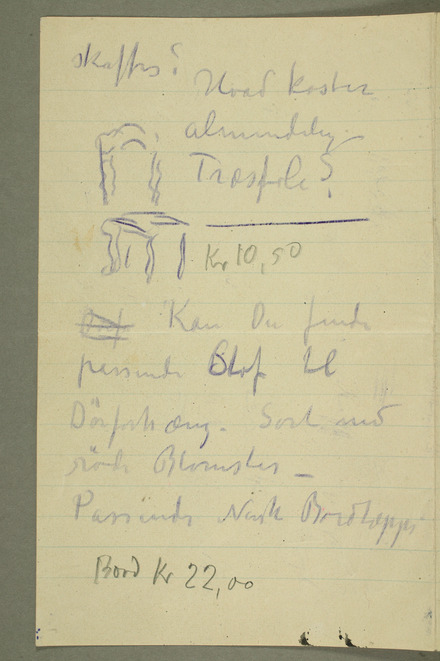 skaffes?
Hvad koster
almindelig
Træstole?
Kr 10,50
Kan Du finde
passende Stof til
Dörforhæng. Sort med
röde Blomster_
Passende Norsk Bordteppe
Bord Kr 22,00